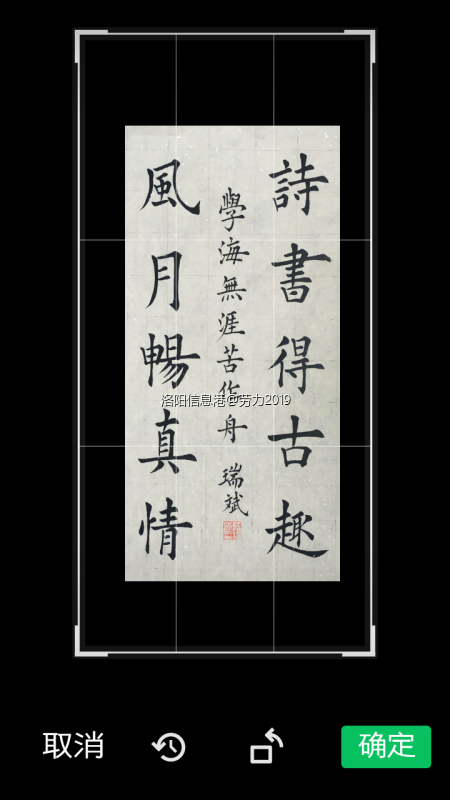 詩書得古趣
學海無涯苦作舟 瑞斌
風月暢真情
洛阳信息港@劳力2019
取消
确定